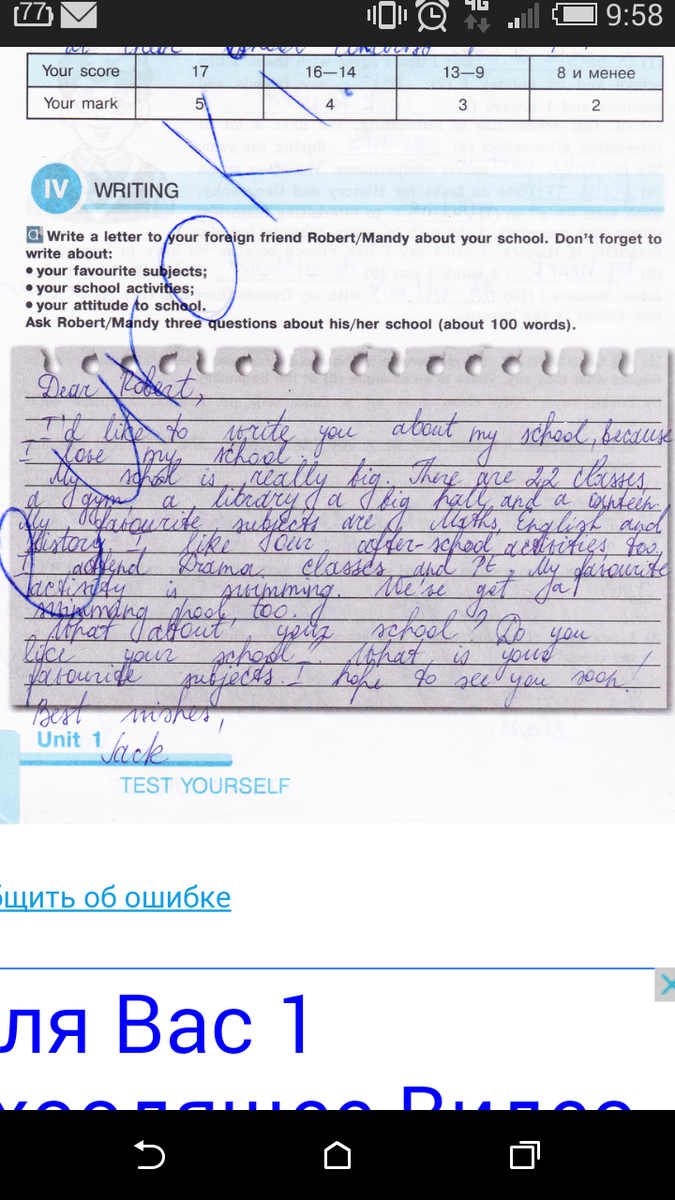 77
4G
9:58
Your score 17 16—14 13—9 8 и менее
Your mark 5 4 3 2
IV WRITING
a Write a letter to your foreign friend Robert/Mandy about your school. Don't forget to
write about:
• your favourite subjects;
• your school activities;
• your attitude to school.
Ask Robert/Mandy three questions about his/her school (about 100 words).
Dear Robert,
I'd like to write you about my school, because
I love my school.
My school is really big. There are 22 classes
a gym, a library, a big hall and a canteen.
My favourite subjects are Maths, English and
History. I like our after-school activities too.
I attend Drama classes and PE. My favourite
activity is swimming. We've got a
swimming pool, too.
What about your school? Do you
like your school? What is your
favourite subjects. I hope to see you soon!
Best wishes,
Jack
Unit 1
TEST YOURSELF
бщить об ошибке
ля Вас 1